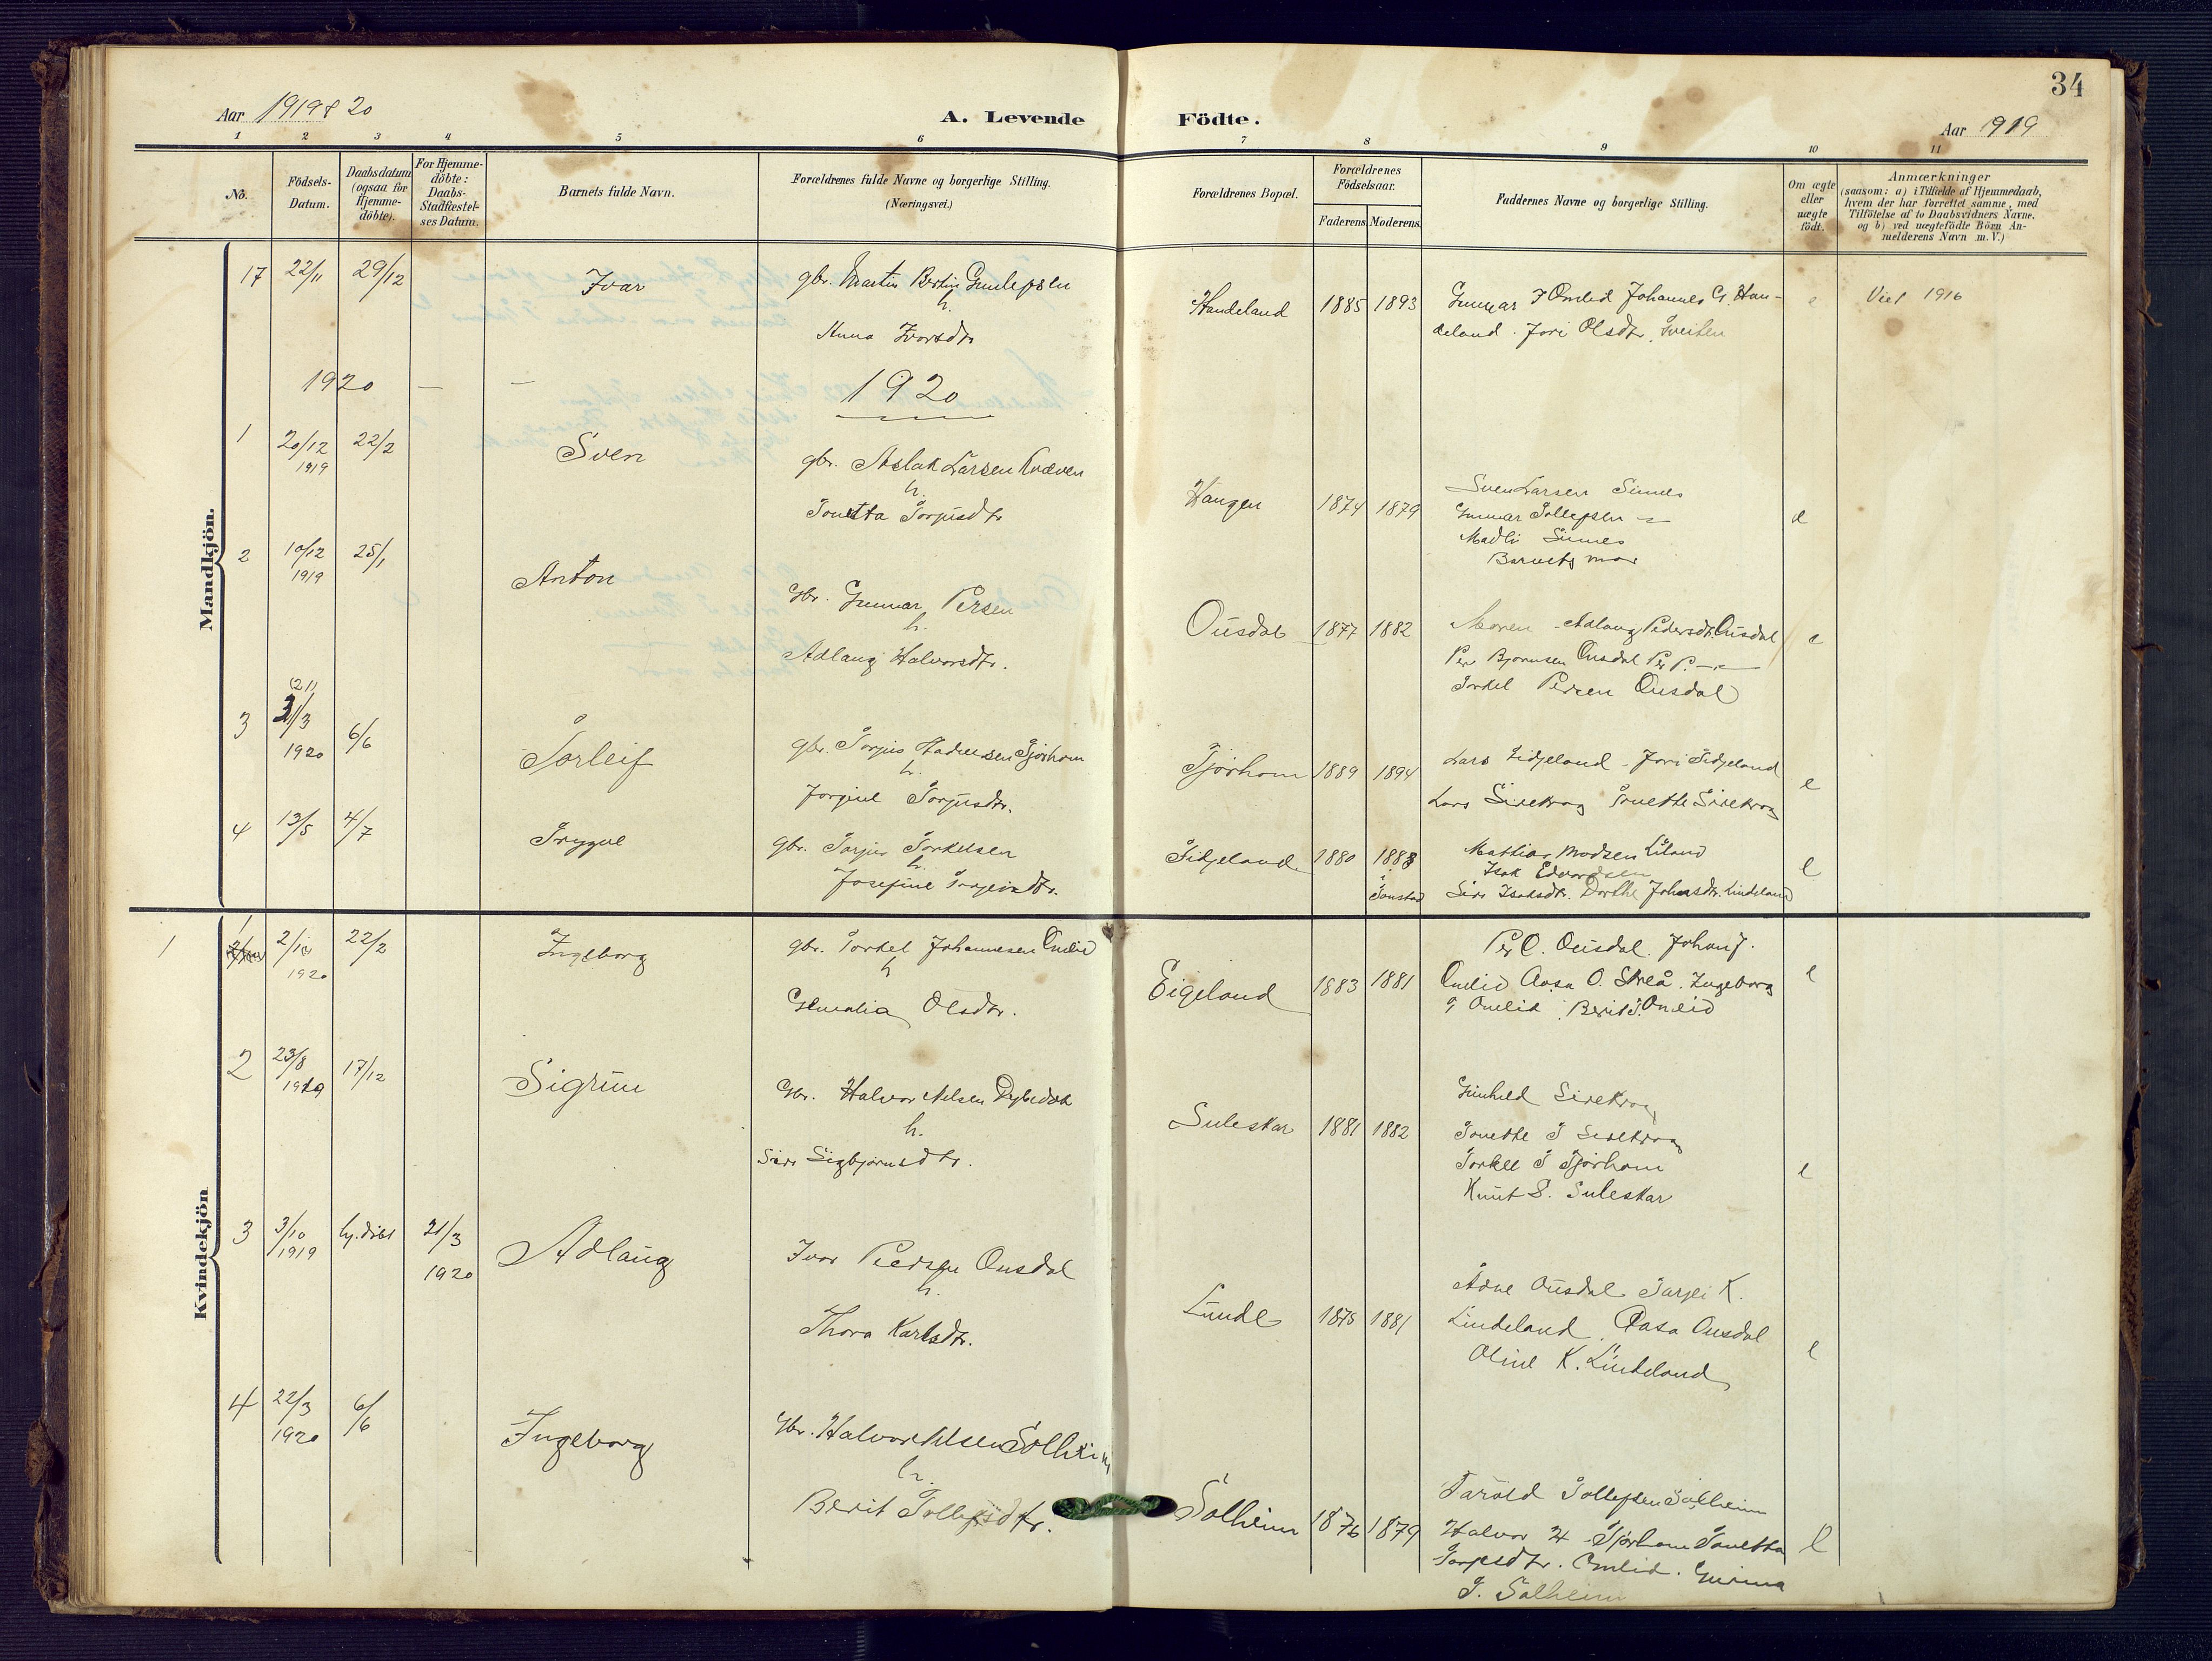 34
Aar 1919 & 20
A. Levende Födte.
Aar 1919
1 2 3 4 5 6 7 8 9 10 11
Nö.
Födsels-Datum.
Daabsdatum (ogsaa for Hjemme-döbte).
For Hjemme-döbte: Daabs-Stadfæstel-ses Datum.
Barnets fulde Navn.
Forældrenes fulde Navne og borgerlige Stilling.
(Næringsvei.)
Forældrenes Bopæl.
Forældrenes Födselsaar.
Faderens. Moderens.
Faddernes Navne og borgerlige Stilling.
Om ægte eller uægte födt.
Anmærkninger
(saasom: a) i Tilfælde af Hjemmedaab,
hvem der har forrettet samme, med
Tilföielse af to Daabsvidners Navne.
og b) ved uægtefödte Börn An-
melderens Navn m.V.)
Mandkjön.
17 22/11 29/12 Ivar gbr. Martin Bertin Gunlepsen
h.
Anna Ivarsdtr
Handeland 1885 1893 Gunnar T Omlid Johannes G. Han-
deland. Jori Olsdtr. Sveiten
e Viet 1916
1920 — — 1920
1 20/12 1919 22/2 Sven gbr. Aslak Larsen Kvæven
h.
Tonetta Torjusdtr
Haugen 1874 1879 Sven Larsen Sinnes
Gunnar Tollefsen
Madli Sinnes
Barnets mor
e
2 10/12 1919 25/1 Anton Gbr. Gunnar Persen
h.
Adlaug Halvorsdtr.
Ousdal 1877 1882 Moren Adlaug Pedersdtr. Ousdal
Per Bjornsen Ousdal Per P.
Torkel Persen Ousdal
e
3 (21) 31/3 1920 6/6 Torleif gbr. Torjus Tjorhom
h.
Torjusdtr.
Tjorhom 1889 1894 Lars Tidjeland Jori Tidjeland
Lars Sirekrog Tonette Sirekrog
e
4 13/5 4/7 Trygve gbr. Tarjei Torkelsen
h.
Josefine
Tidjeland 1880 1888 Tonstad
Mathias Madsen Liland
Isak Edvardsen
Siri Isaksdtr. Dorthe Johnsdtr. Lindeland
e
Kvindekjön
1 1 2/10 1920 22/2 Ingeborg gbr. Torkel Johannesen Omlid
h
Olsdtr.
Eigeland 1883 1881 Per O. Ousdal. Johan J.
Omlid Aasa O. Skreå. Ingeborg
Omlid. Berit T. Omlid
e
2 23/8 1919 17/12 Sigrun Gbr. Halvor Nelsen
h.
Siri Sigbjørnsdtr.
Suleskar 1881 1882 Gunhild Sirekrog
Tonette T Sirekrog
Torkel T Tjorhom
Knut S. Suleskar
e
3 3/10 1919 hj. döbt 21/3 1920 Adlaug Ivar Pedersen Ousdal
h.
Thora Karlsdtr.
Lunde 1875 1881 Adne Ousdal Tarjei K.
Lindeland. Aasa Ousdal
Oline K. Lindeland
e
4 22/3 1920 6/6 Ingeborg Gbr. Halvor Nelsen Solheim
h.
Berit Tollefsdtr.
Solheim 1876 1879 Tarald Tollefsen Solheim
Halvor H Tjorhom Tonetta
Torjusdtr. Omlid. Gurina
T. Solheim
e